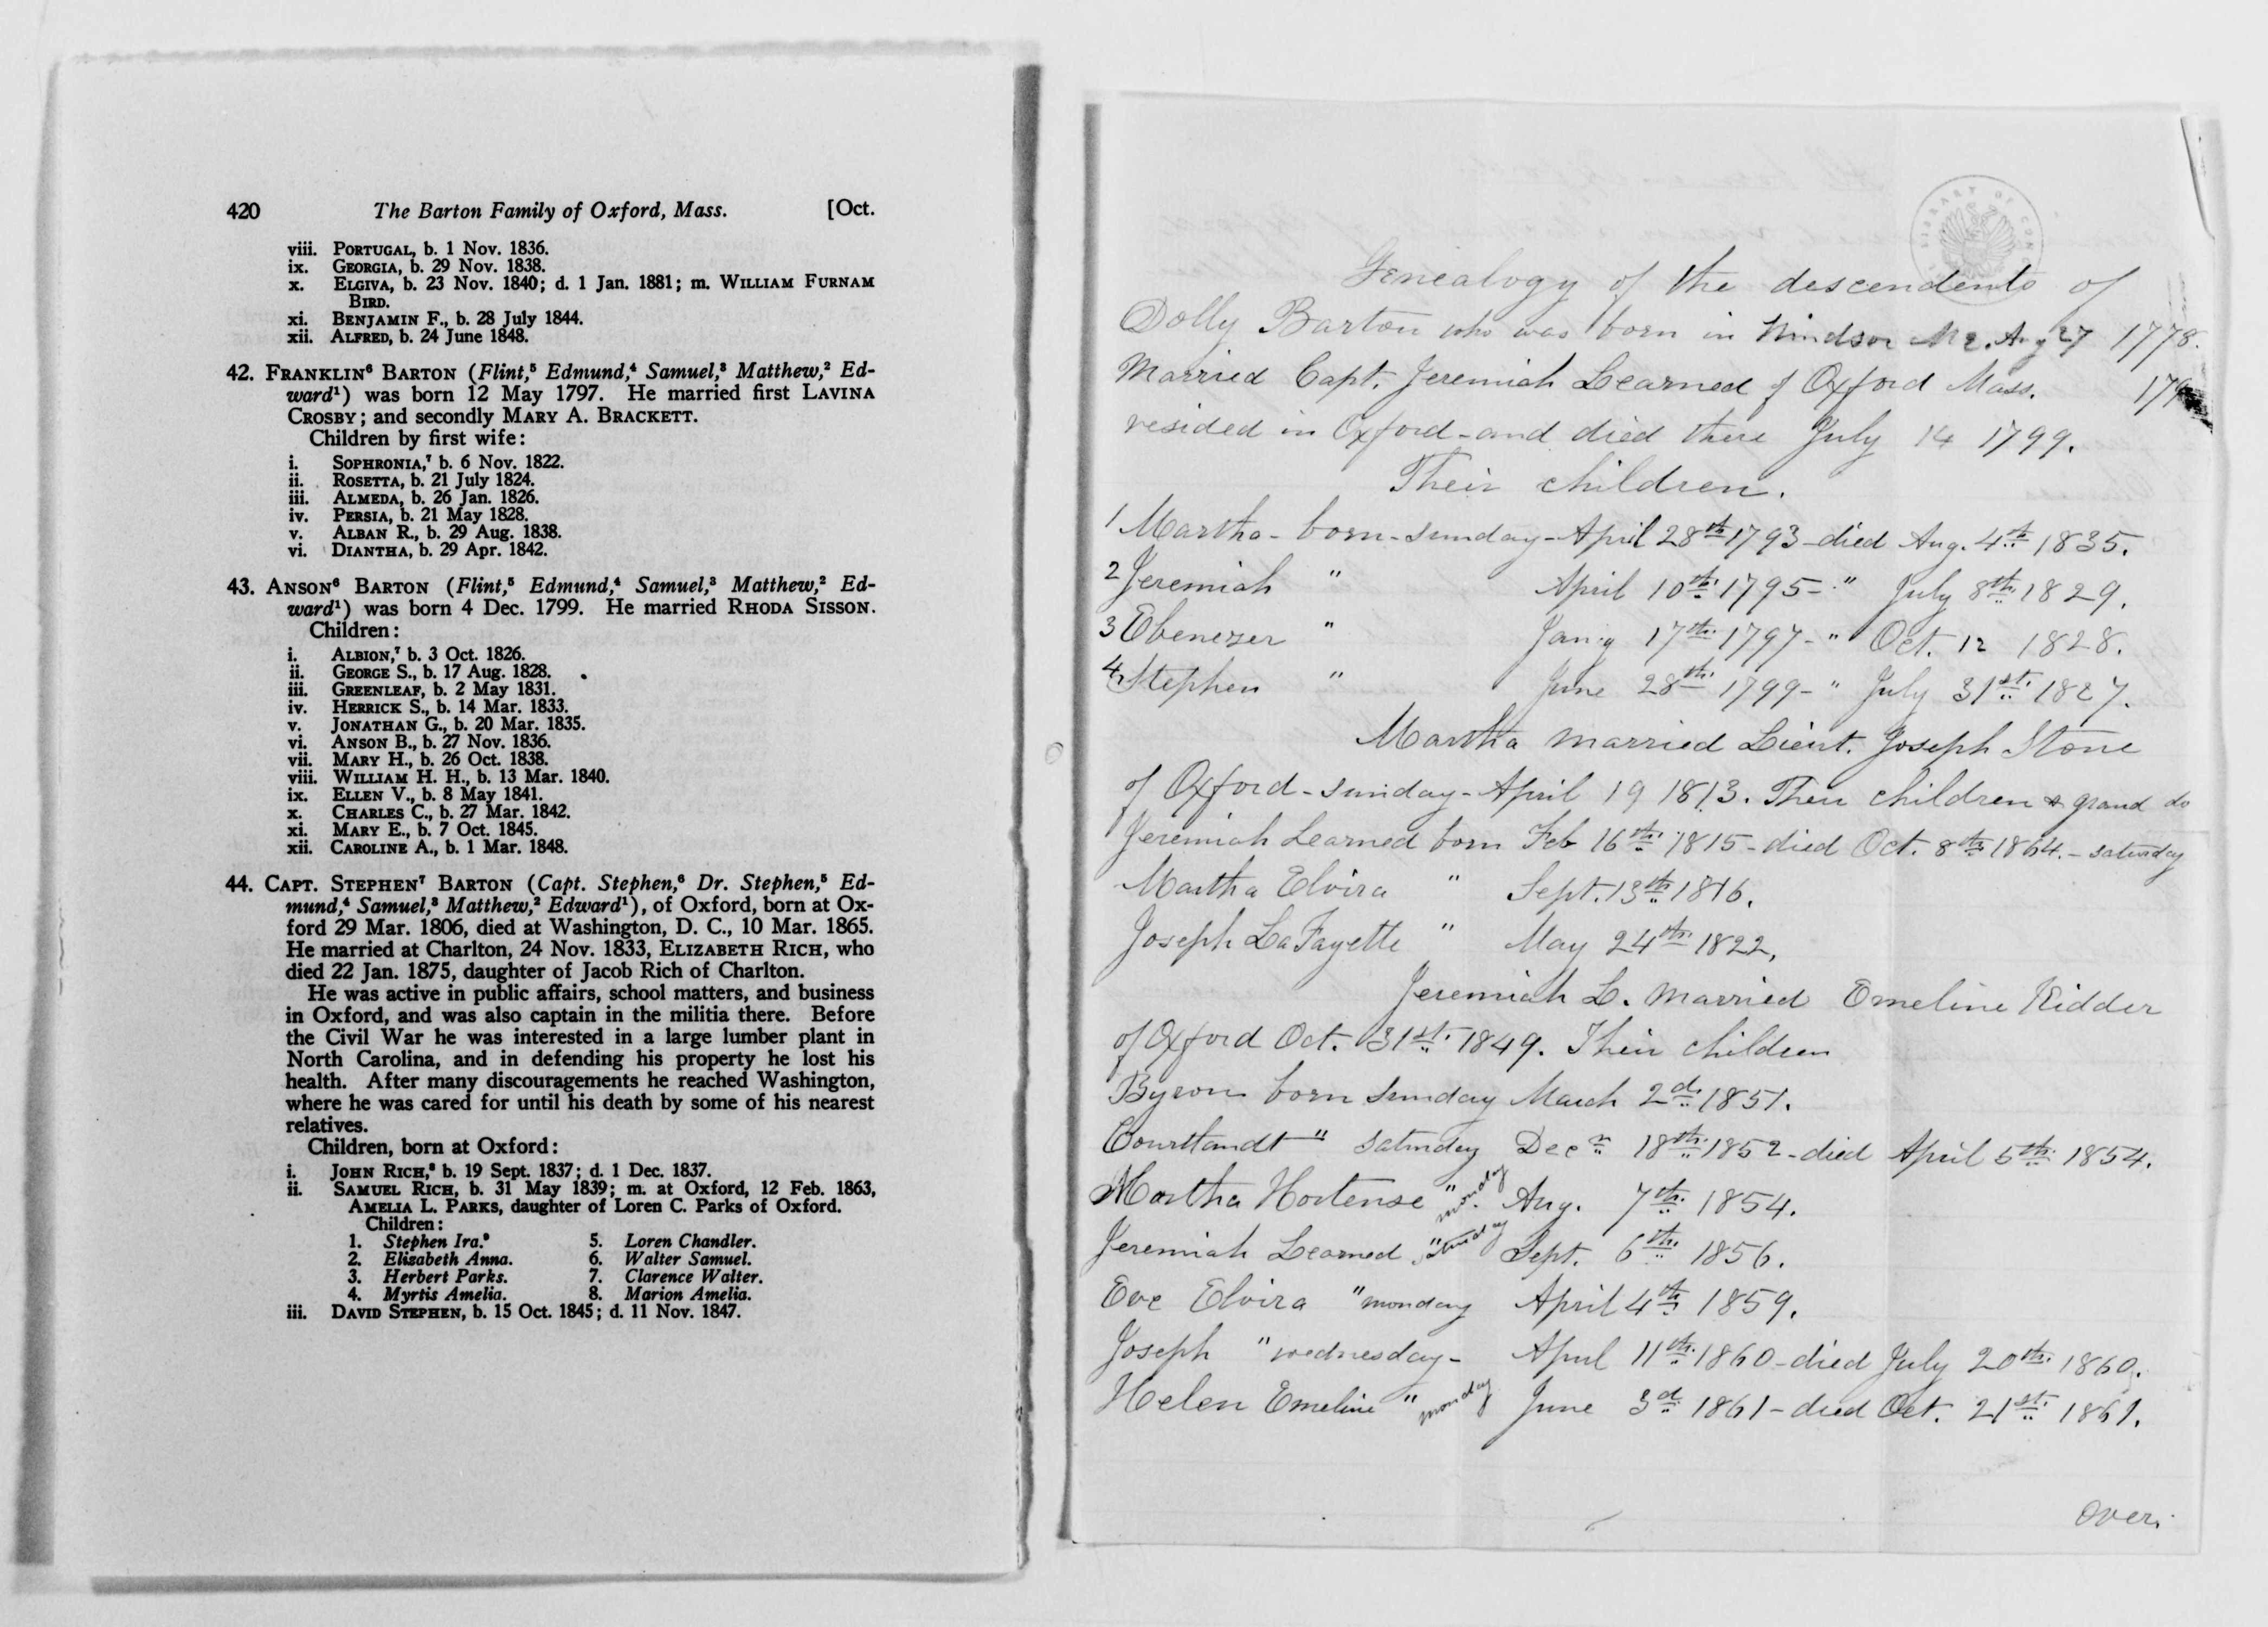 420 The Barton Family of Oxford, Mass. [Oct.
viii. PORTUGAL, b. 1 Nov. 1836.
ix. GEORGIA, b. 29 Nov. 1838.
x. ELGIVA, b. 23 Nov. 1840; d. 1 Jan. 1881; m. WILLIAM FURNAM
BIRD.
xi. BENJAMIN F., b. 28 July 1844.
xii. ALFRED, b. 24 June 1848.
42. FRANKLIN⁶ BARTON (Flint,⁵ Edmund,⁴ Samuel,³ Matthew,² Ed-
ward¹) was born 12 May 1797. He married first LAVINA
CROSBY; and secondly MARY A. BRACKETT.
Children by first wife:
i. SOPHRONIA,⁷ b. 6 Nov. 1822.
ii. ROSETTA, b. 21 July 1824.
iii. ALMEDA, b. 26 Jan. 1826.
iv. PERSIA, b. 21 May 1828.
v. ALBAN R., b. 29 Aug. 1838.
vi. DIANTHA, b. 29 Apr. 1842.
43. ANSON⁶ BARTON (Flint,⁵ Edmund,⁴ Samuel,³ Matthew,² Ed-
ward¹) was born 4 Dec. 1799. He married RHODA SISSON.
Children:
i. ALBION,⁷ b. 3 Oct. 1826.
ii. GEORGE S., b. 17 Aug. 1828.
iii. GREENLEAF, b. 2 May 1831.
iv. HERRICK S., b. 14 Mar. 1833.
v. JONATHAN G., b. 20 Mar. 1835.
vi. ANSON B., b. 27 Nov. 1836.
vii. MARY H., b. 26 Oct. 1838.
viii. WILLIAM H. H., b. 13 Mar. 1840.
ix. ELLEN V., b. 8 May 1841.
x. CHARLES C., b. 27 Mar. 1842.
xi. MARY E., b. 7 Oct. 1845.
xii. CAROLINE A., b. 1 Mar. 1848.
44. CAPT. STEPHEN⁷ BARTON (Capt. Stephen,⁶ Dr. Stephen,⁵ Ed-
mund,⁴ Samuel,³ Matthew,² Edward¹), of Oxford, born at Ox-
ford 29 Mar. 1806, died at Washington, D. C., 10 Mar. 1865.
He married at Charlton, 24 Nov. 1833, ELIZABETH RICH, who
died 22 Jan. 1875, daughter of Jacob Rich of Charlton.
He was active in public affairs, school matters, and business
in Oxford, and was also captain in the militia there. Before
the Civil War he was interested in a large lumber plant in
North Carolina, and in defending his property he lost his
health. After many discouragements he reached Washington,
where he was cared for until his death by some of his nearest
relatives.
Children, born at Oxford:
i. JOHN RICH,⁸ b. 19 Sept. 1837; d. 1 Dec. 1837.
ii. SAMUEL RICH, b. 31 May 1839; m. at Oxford, 12 Feb. 1863,
AMELIA L. PARKS, daughter of Loren C. Parks of Oxford.
Children:
1. Stephen Ira.⁹ 5. Loren Chandler.
2. Elizabeth Anna. 6. Walter Samuel.
3. Herbert Parks. 7. Clarence Walter.
4. Myrtis Amelia. 8. Marion Amelia.
iii. DAVID STEPHEN, b. 15 Oct. 1845; d. 11 Nov. 1847.
Genealogy of the descendents of
Dolly Barton who was born in Windsor Me. Aug 27 1778.
Married Capt. Jeremiah Learned of Oxford Mass.
resided in Oxford - and died there July 14 1799.
Their children.
1 Martha - born - sunday - April 28th 1793 - died Aug. 4th 1835.
2 Jeremiah " April 10th 1795 - " July 8th 1829.
3 Ebenezer " Jan'y 17th 1797 - " Oct. 12 1828.
4 Stephen " June 28th 1799 - " July 31st 1827.
Martha married Lieut. Joseph Stone
of Oxford - sunday - April 19 1813. Their children & grand do
Jeremiah Learned born Feb 16th 1815 - died Oct. 8th 1864. - saturday
Martha Elvira " Sept. 13th 1816.
Joseph LaFayette " May 24th 1822,
Jeremiah L. married Emeline Kidder
of Oxford Oct. 31st 1849. Their children
Byron born sunday March 2d 1851.
Courtlandt " saturday Decr 18th 1852 - died April 5th 1854.
Martha Hortense " monday Aug. 7th 1854.
Jeremiah Learned " Sept. 6th 1856.
Eve Elvira " monday April 4th 1859.
Joseph " wednesday - April 11th 1860 - died July 20th 1860.
Helen Emeline " monday June 3d 1861 - died Oct. 21st 1861.
over.